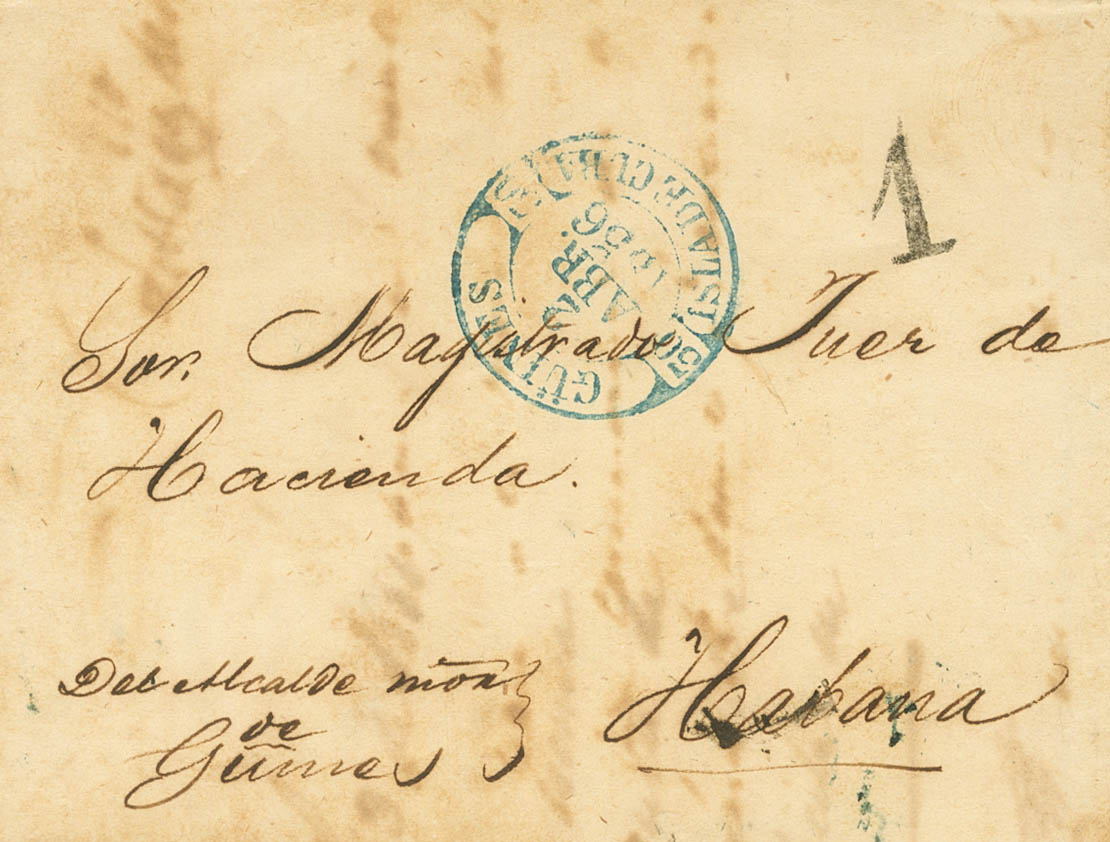 1
GÜINES
(ISLA DE CUBA)
2
ABR.
1856
Sor. Magistrado Juez de
Hacienda.
Del Alcalde mõr
de
Güines
Habana